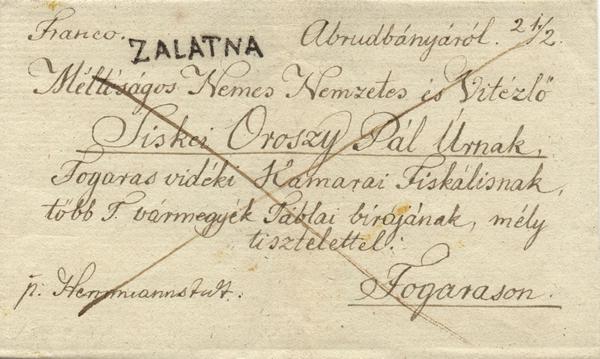 Franco. ZALATNA Abrudbányáról. 2 1/2.
Méltóságos Nemes Nemzetes és Vitézlő
Siskei Oroszy Pál Úrnak,
Fogaras vidéki Kamarai Fiskálisnak,
több T. vármegyék Táblai bírájának, mély
tisztelettel:
p: Herrmannstadt.
Fogarason.